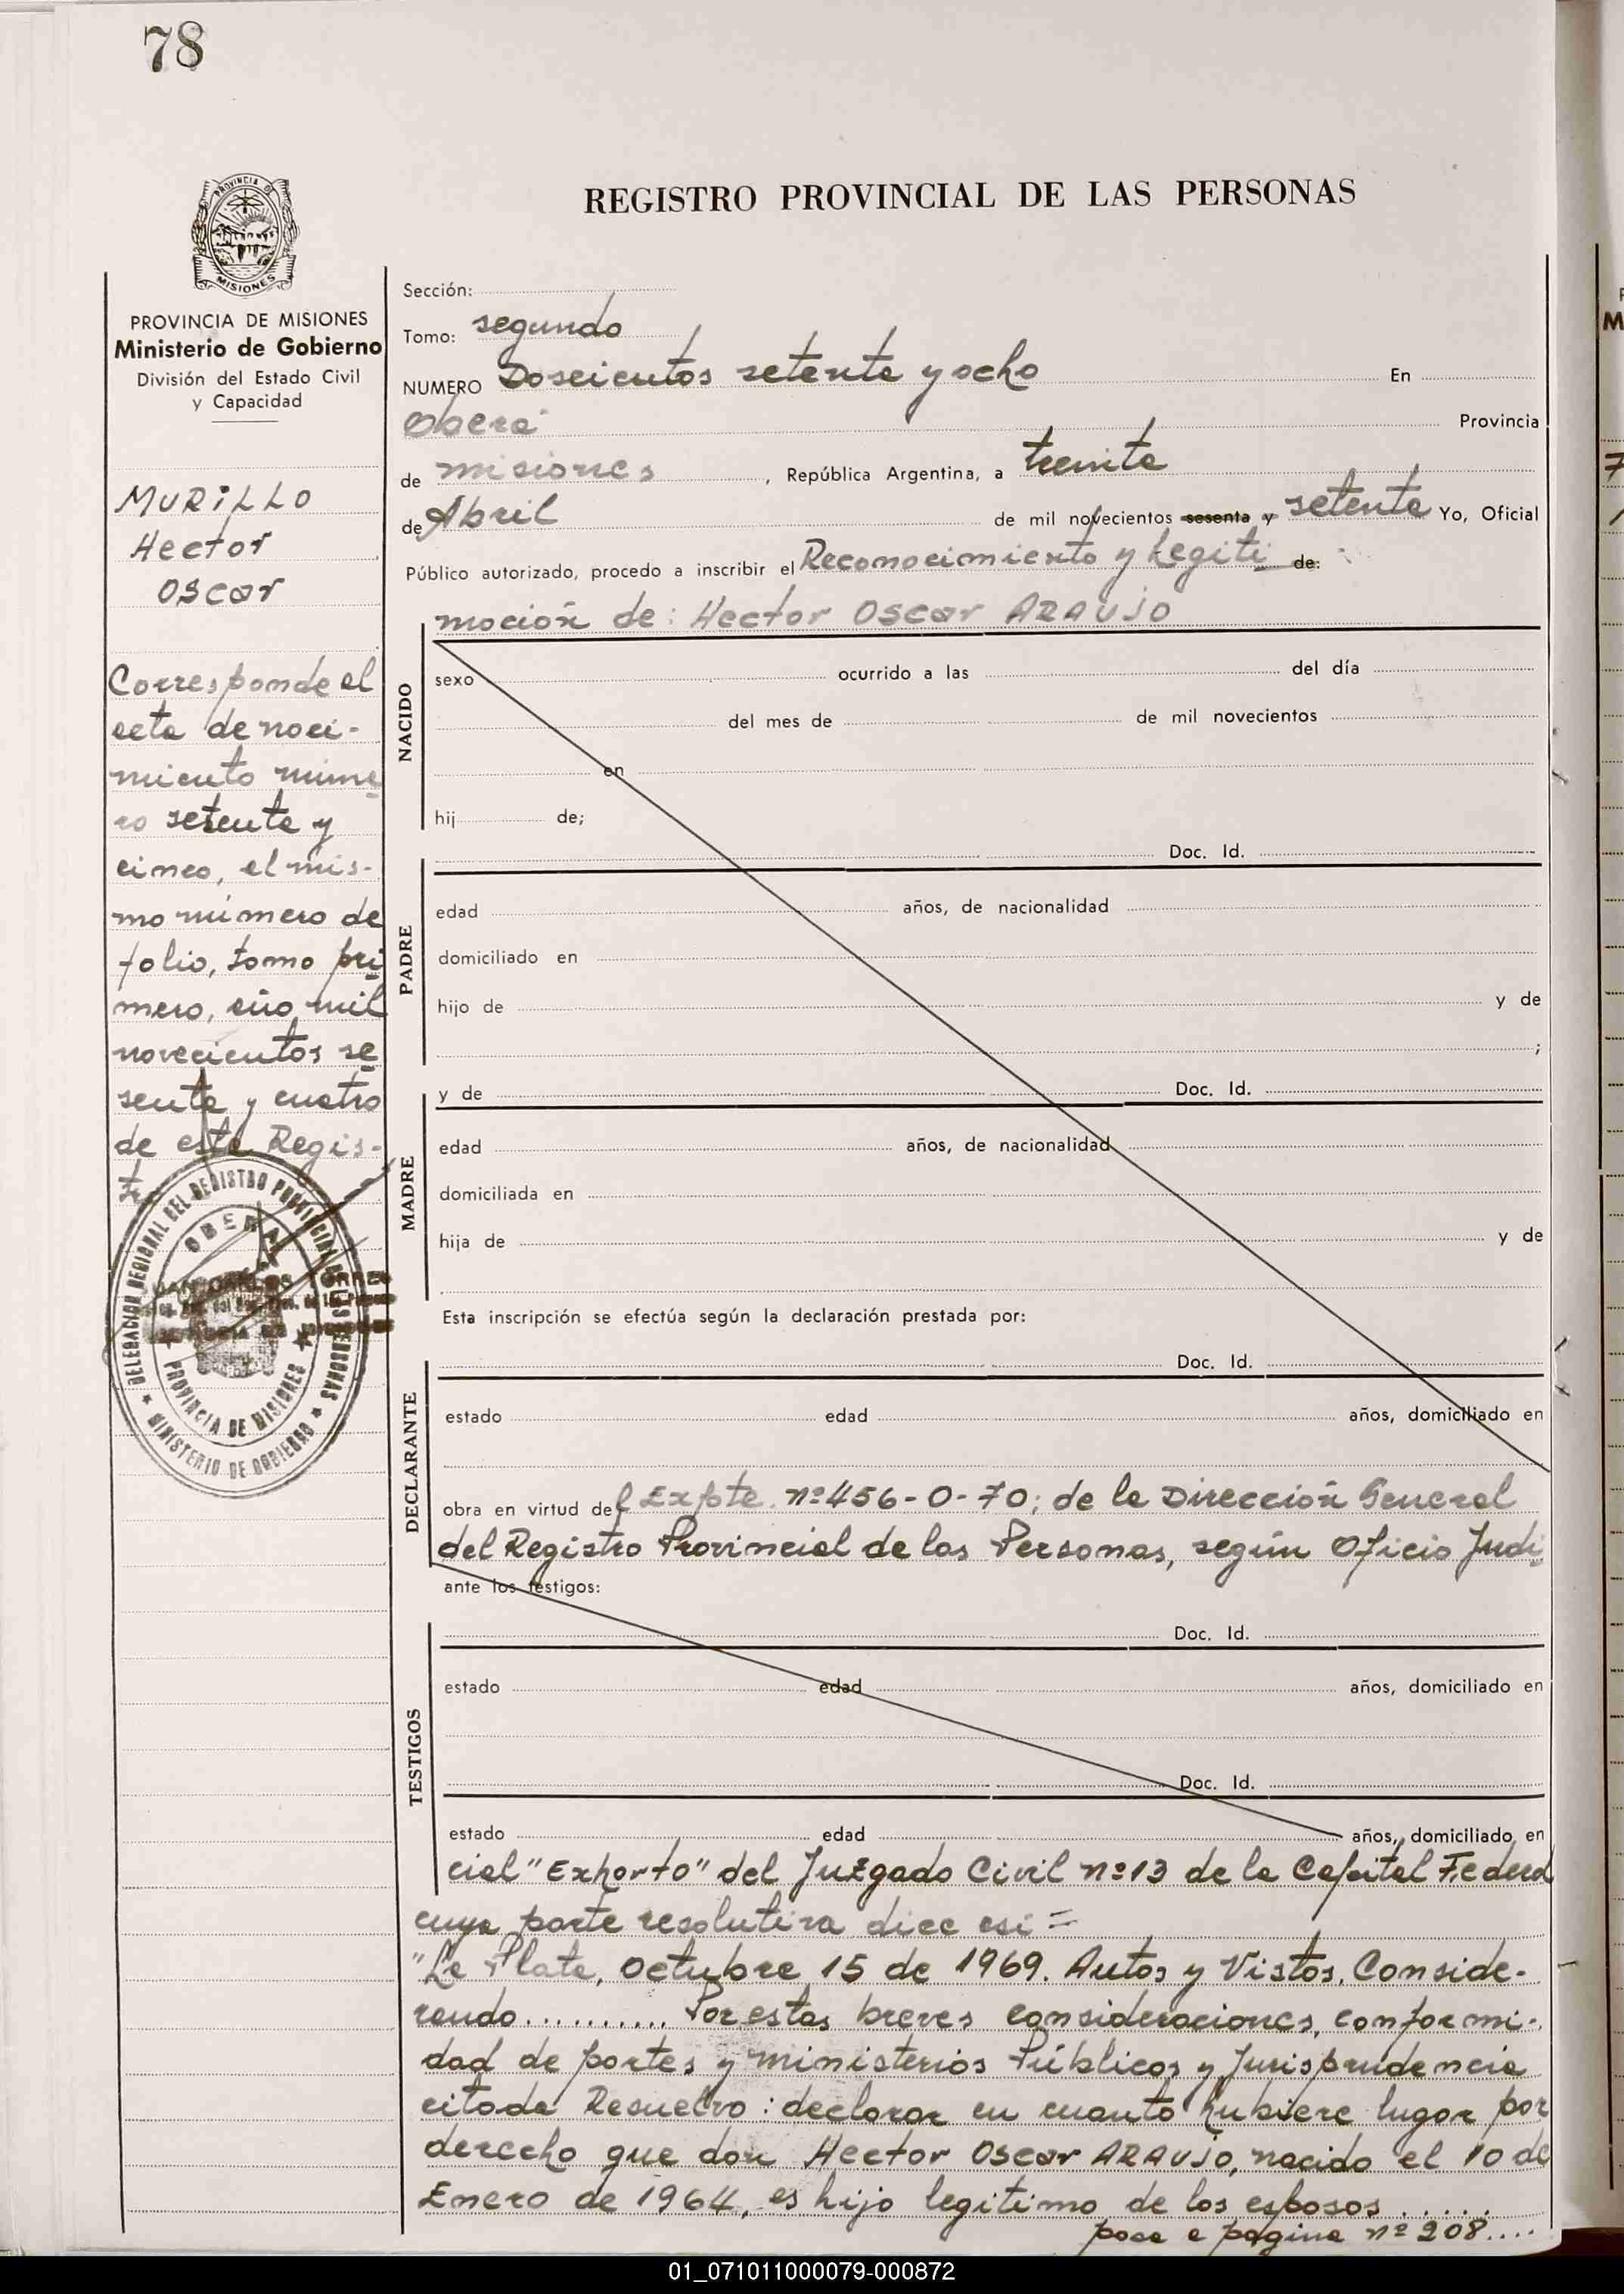 78
PROVINCIA DE
MISIONES
REGISTRO PROVINCIAL DE LAS PERSONAS
PROVINCIA DE MISIONES
Ministerio de Gobierno
División del Estado Civil
y Capacidad
MURILLO
Hector
Oscar
Corresponde el
acta de naci-
miento núme
ro setenta y
cinco, el mis-
mo número de
folio, tomo pri
mero, año mil
novecientos se
senta y cuatro
de este Regis-
tro
DELEGACION REGIONAL DEL REGISTRO PROVINCIAL DE LAS PERSONAS
OBERA
JUAN CARLOS TORRES
PROVINCIA DE MISIONES
MINISTERIO DE GOBIERNO
Sección:
Tomo: segundo
NUMERO Doscientos setenta y ocho En
Oberá Provincia
de misiones, República Argentina, a treinta
de Abril de mil novecientos sesenta y setenta Yo, Oficial
Público autorizado, procedo a inscribir el Reconocimiento y Legiti de:
mación de: Hector Oscar ARAUJO
NACIDO
sexo ocurrido a las del día
del mes de de mil novecientos
en
hij de;
Doc. Id.
PADRE
edad años, de nacionalidad
domiciliado en
hijo de y de
;
y de Doc. Id.
MADRE
edad años, de nacionalidad
domiciliada en
hija de y de
Esta inscripción se efectúa según la declaración prestada por:
Doc. Id.
DECLARANTE
estado edad años, domiciliado en
obra en virtud del Expte. nº 456-0-70; de la Dirección General
del Registro Provincial de las Personas, según Oficio Judi
ante los testigos:
Doc. Id.
TESTIGOS
estado edad años, domiciliado en
Doc. Id.
estado edad años, domiciliado en
cial "Exhorto" del Juzgado Civil nº 13 de la Capital Federal
cuya parte resolutiva dice asi =
"La Plata, Octubre 15 de 1969. Autos y Vistos, Conside-
rando.......... Por estas breves consideraciones, conformi-
dad de partes y ministerios Públicos y Jurisprudencia
citada Resuelvo: declarar en cuanto hubiere lugar por
derecho que don Hector Oscar ARAUJO, nacido el 10 de
Enero de 1964, es hijo legítimo de los esposos ......
pasa a página nº 208....
01_071011000079-000872